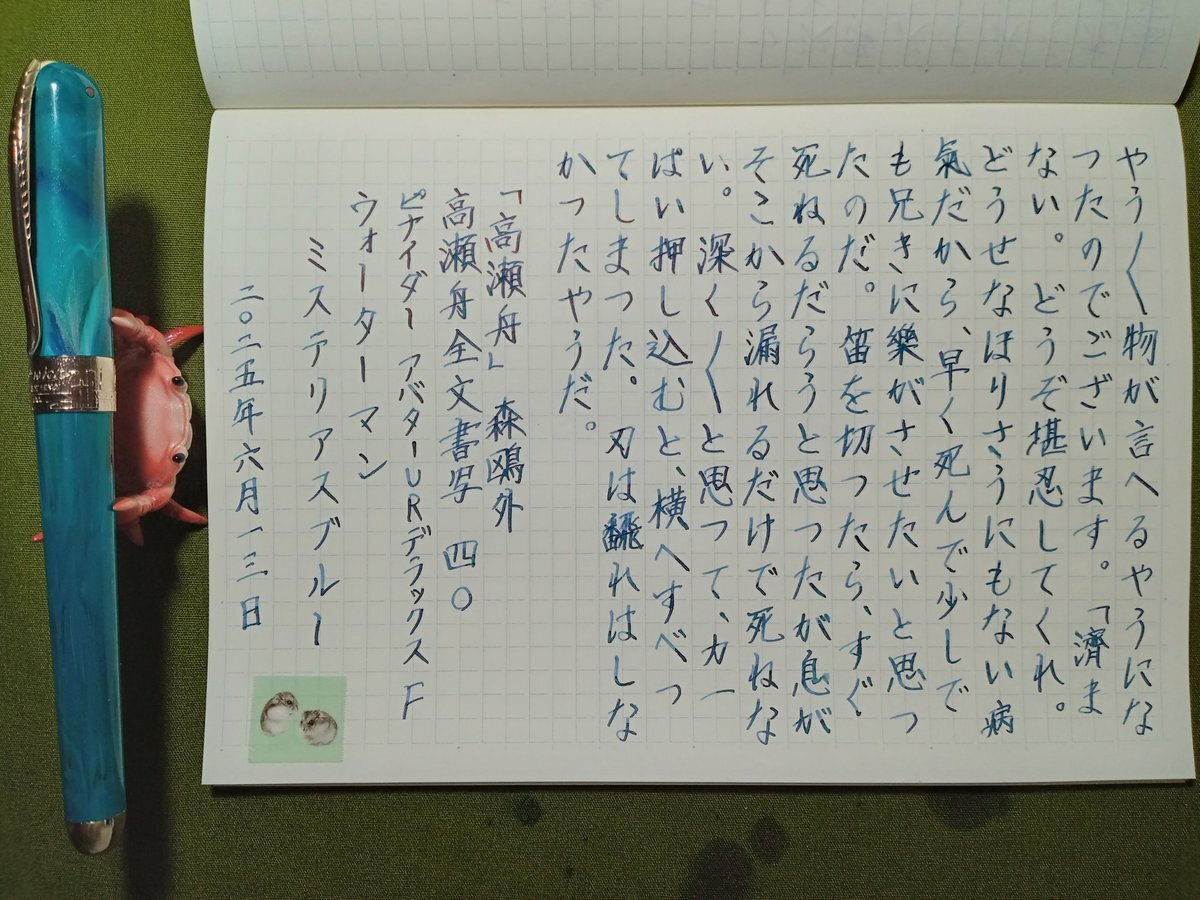 やう〱物が言へるやうにな
つたのでございます。「濟ま
ない。どうぞ堪忍してくれ。
どうせなほりさうにもない病
氣だから、早く死んで少しで
も兄きに樂がさせたいと思つ
たのだ。笛を切つたら、すぐ
死ねるだらうと思つたが息が
そこから漏れるだけで死ねな
い。深く〱と思つて、力一
ぱい押し込むと、横へすべつ
てしまつた。刃は飜れはしな
かつたやうだ。
「高瀬舟」 森鴎外
高瀬舟全文書写 四〇
ピナイダー アバターURデラックス F
ウォーターマン
ミステリアスブルー
二〇二五年六月一三日